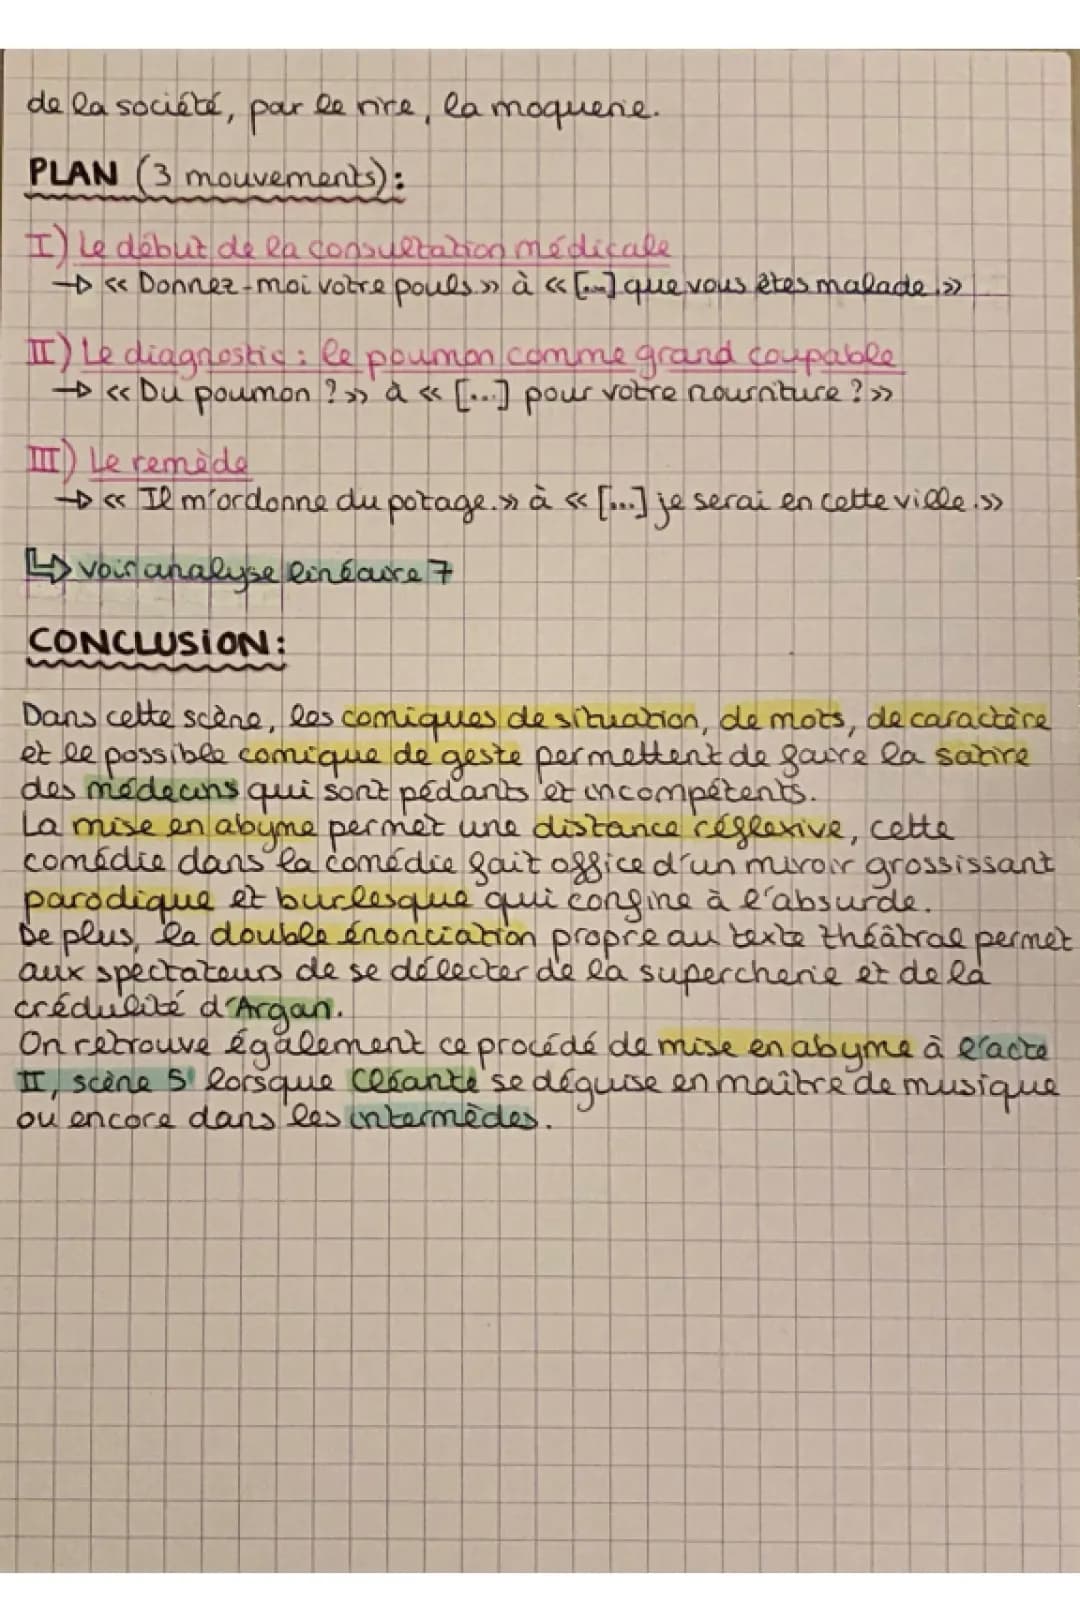 de la société, par le rire, la moquerie.
PLAN (3 mouvements):
I) Le début de la consultation médicale
→ « Donnez-moi votre pouls » à « [...] que vous êtes malade.»
II) Le diagnostic : le poumon comme grand coupable
→ « Du poumon ? » à « [...] pour votre nourriture ? »
III) Le remède
→ « Il m'ordonne du potage. » à « [...] je serai en cette ville.»
↳ voir analyse linéaire 7
CONCLUSION:
Dans cette scène, les comiques de situation, de mots, de caractère
et le possible comique de geste permettent de faire la satire
des médecins qui sont pédants et incompétents.
La mise en abyme permet une distance réflexive, cette
comédie dans la comédie fait office d'un miroir grossissant
parodique et burlesque qui confine à l'absurde.
De plus, la double énonciation propre au texte théâtral permet
aux spectateurs de se délecter de la supercherie et de la
crédulité d'Argan.
On retrouve également ce procédé de mise en abyme à l'acte
II, scène 5 lorsque Cléante se déguise en maître de musique
ou encore dans les intermèdes.